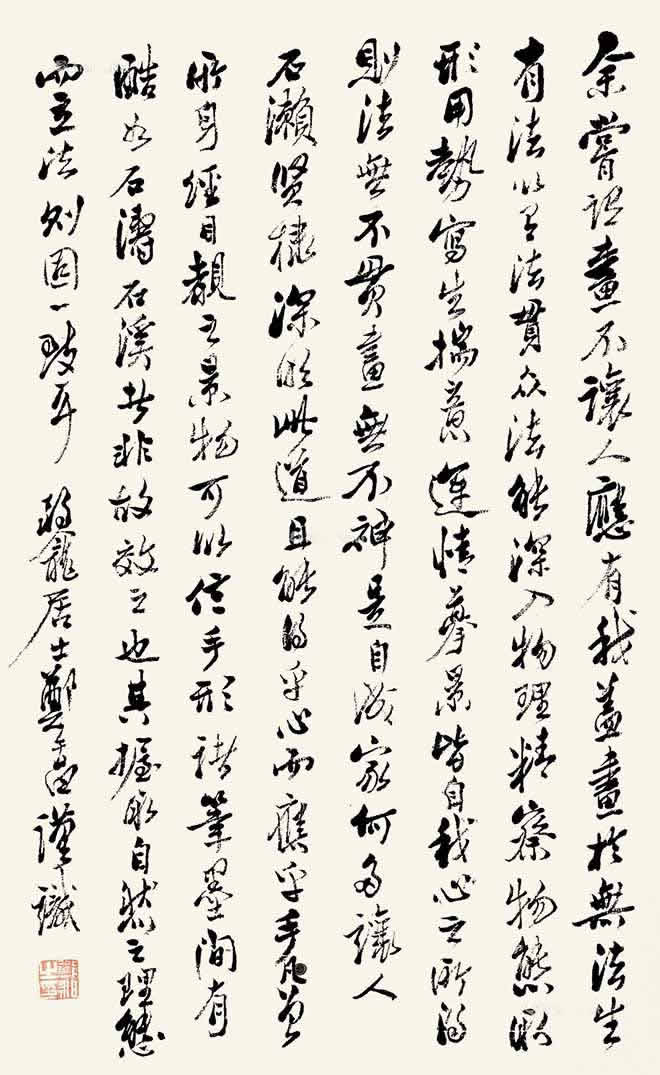 余嘗謂畫不讓人應有我蓋畫於無法生
有法以有法貫众法能深入物理精察物態取
形用勢寫生揣意運情摹景皆自我心之所得
則法無不貫畫無不神是自成家何多讓人
石瀨賢棣深明此道且能得乎心而應乎手凡曾
所身經目覩之景物可以信手形諸筆墨間有
酷如石濤石溪者非故效之也其握取自然之理態
而立法則固一致耳 弱龕居士鄭午昌謹識